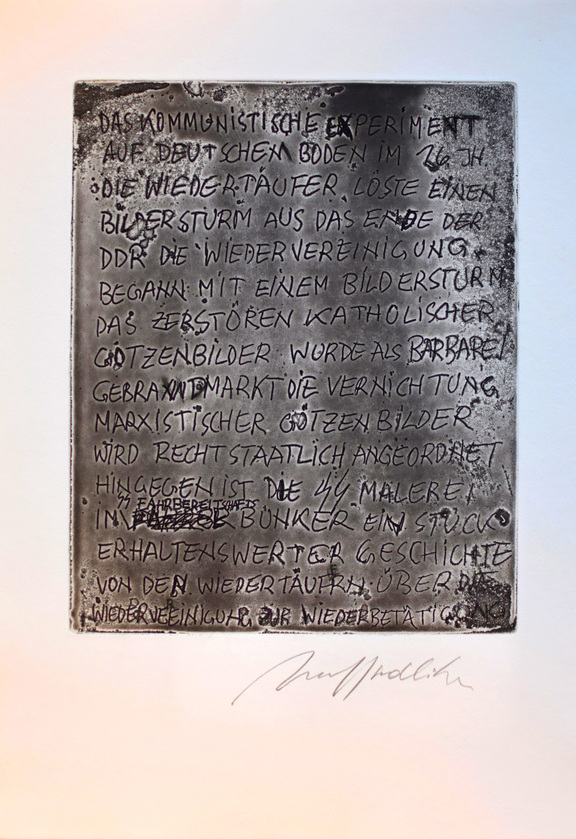 DAS KOMMUNISTISCHE EXPERIMENT
AUF DEUTSCHEM BODEN IM 16. JH
DIE WIEDERTÄUFER LÖSTE EINEN
BILDERSTURM AUS DAS ENDE DER
DDR DIE WIEDERVEREINIGUNG
BEGANN MIT EINEM BILDERSTURM
DAS ZERSTÖREN KATHOLISCHER
GÖTZENBILDER WURDE ALS BARBAREI
GEBRANDMARKT DIE VERNICHTUNG
MARXISTISCHER GÖTZENBILDER
WIRD RECHTSTAATLICH ANGEORDNET
HINGEGEN IST DIE SS MALEREI
SS FAHRBEREITSCHAFTS
IM BUNKER EIN STÜCK
ERHALTENSWERTER GESCHICHTE
VON DEN WIEDERTÄUFERN ÜBER DIE
WIEDERVEREINIGUNG ZUR WIEDERBETÄTIGUNG